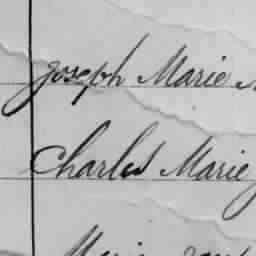 Joseph Marie
Charles Marie